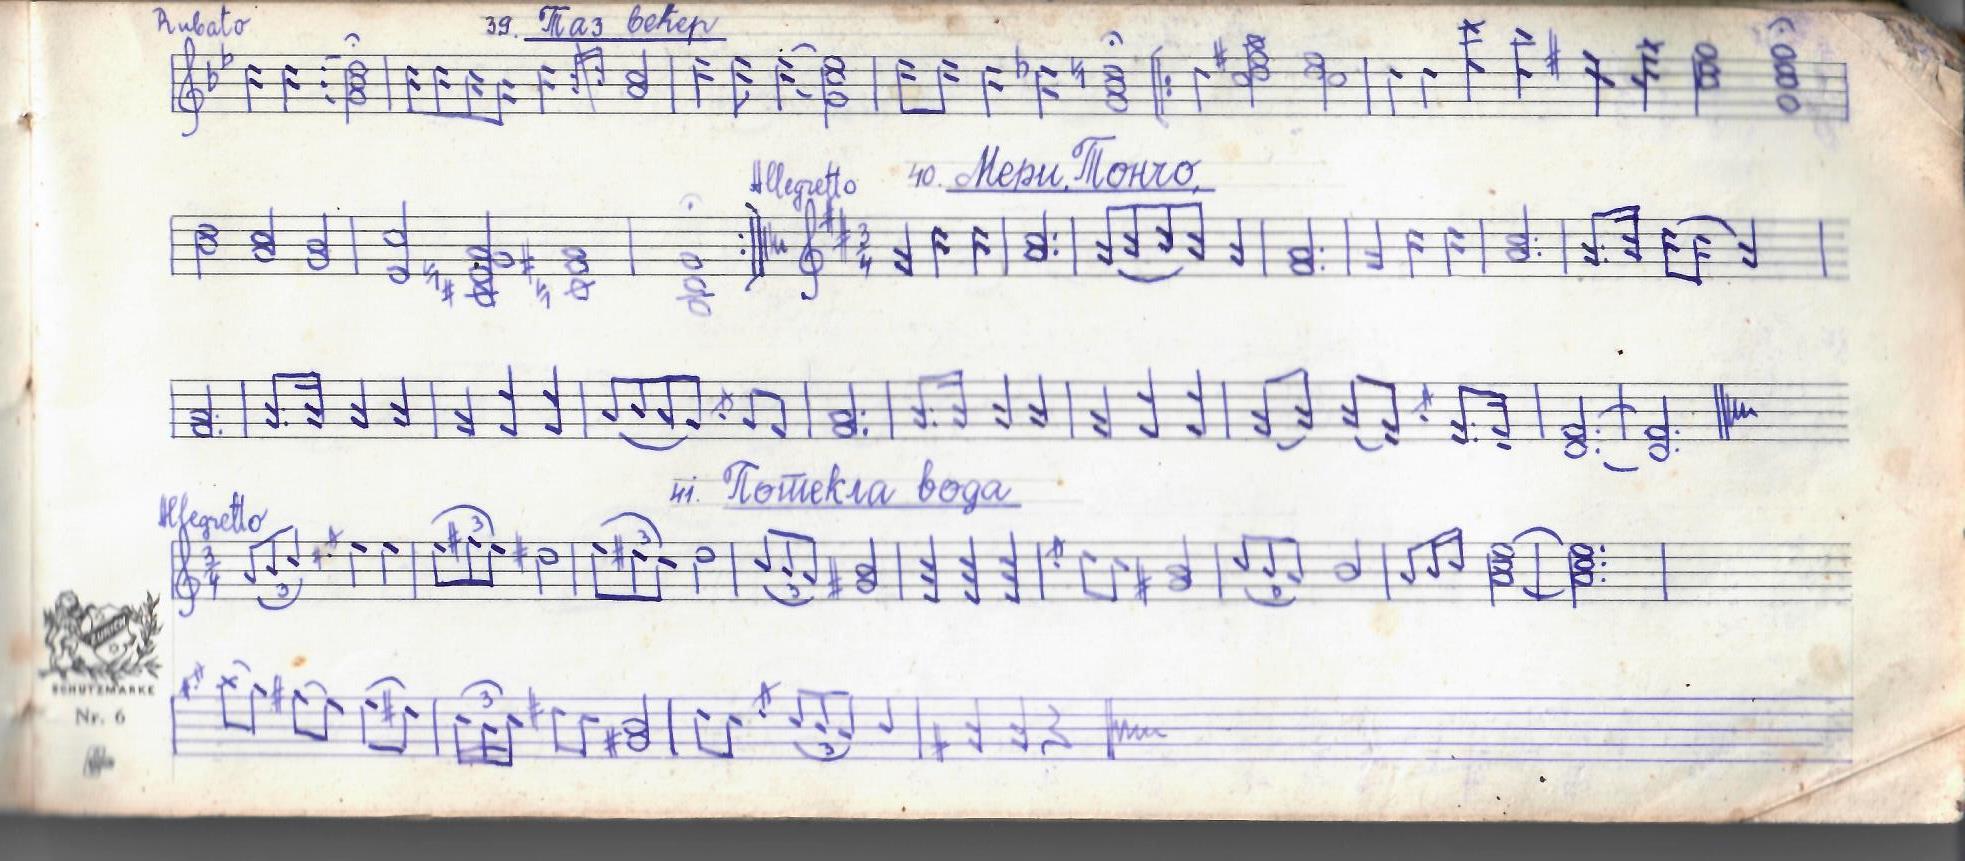 Rubato 39. Таз вечер
Allegretto 40. Мери, Тончо,
3/4
41. Потекла вода
Allegretto
3/4
3 3 3 3
ZÜRICH
SCHUTZMARKE
Nr. 6
3 3